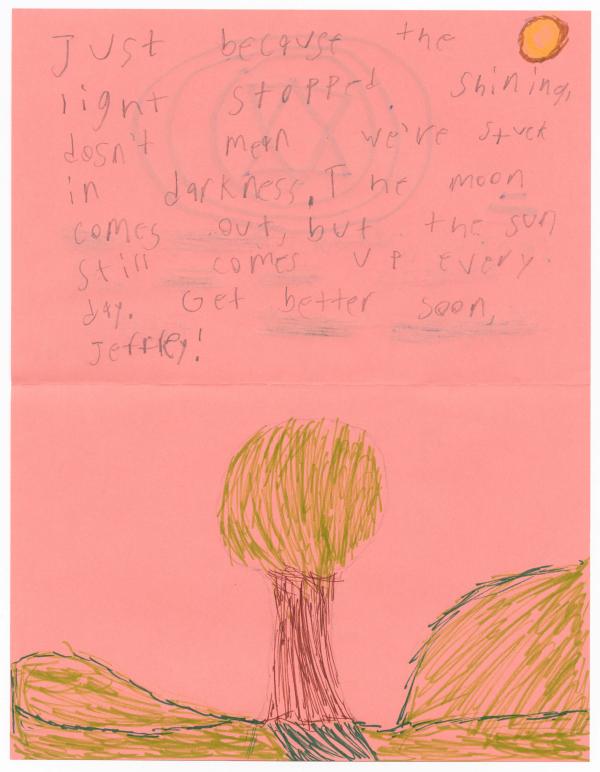 Just because the
right stopped shining,
dosn't mean we're stuck
in darkness. The moon
comes out, but the sun
still comes up every
day. Get better soon,
Jeffrey!